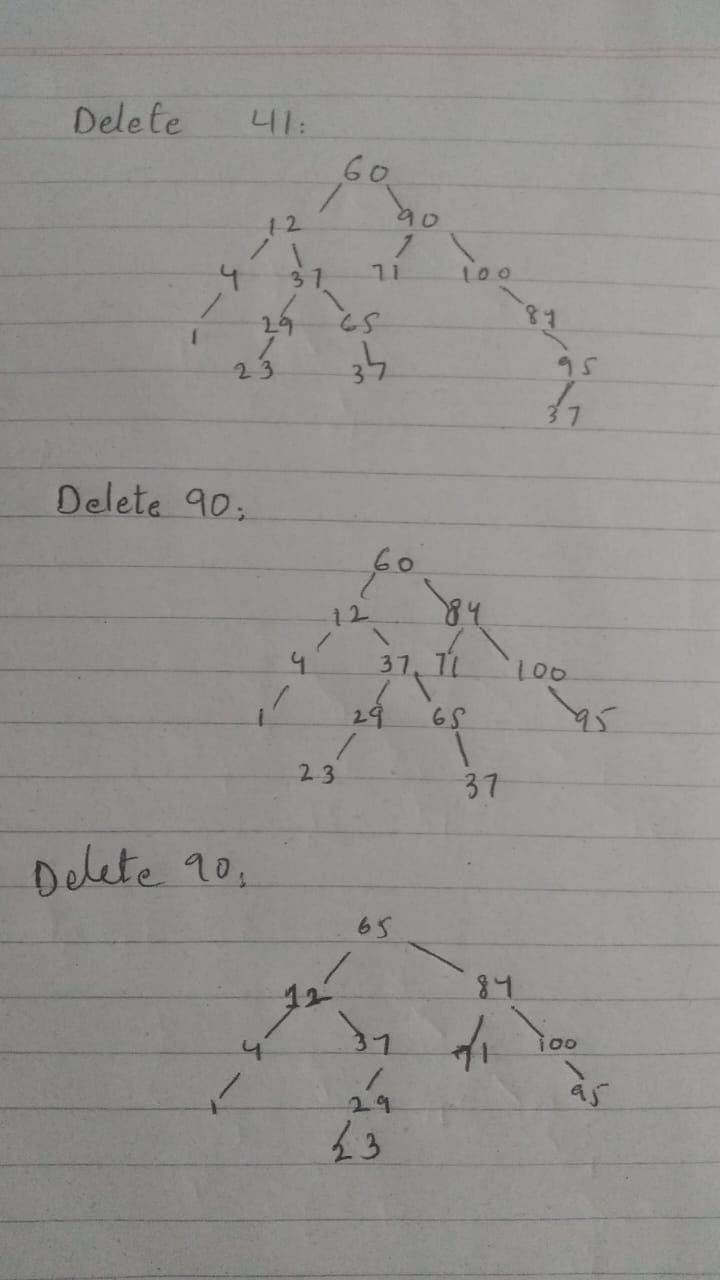 Delete 41:
60
12 90
4 37 71 100
1 29 65 84
23 37 95
37
Delete 90:
60
12 84
4 37 71 100
1 29 65 95
23 37
Delete 90:
65
12 84
4 37 71 100
1 29 95
23